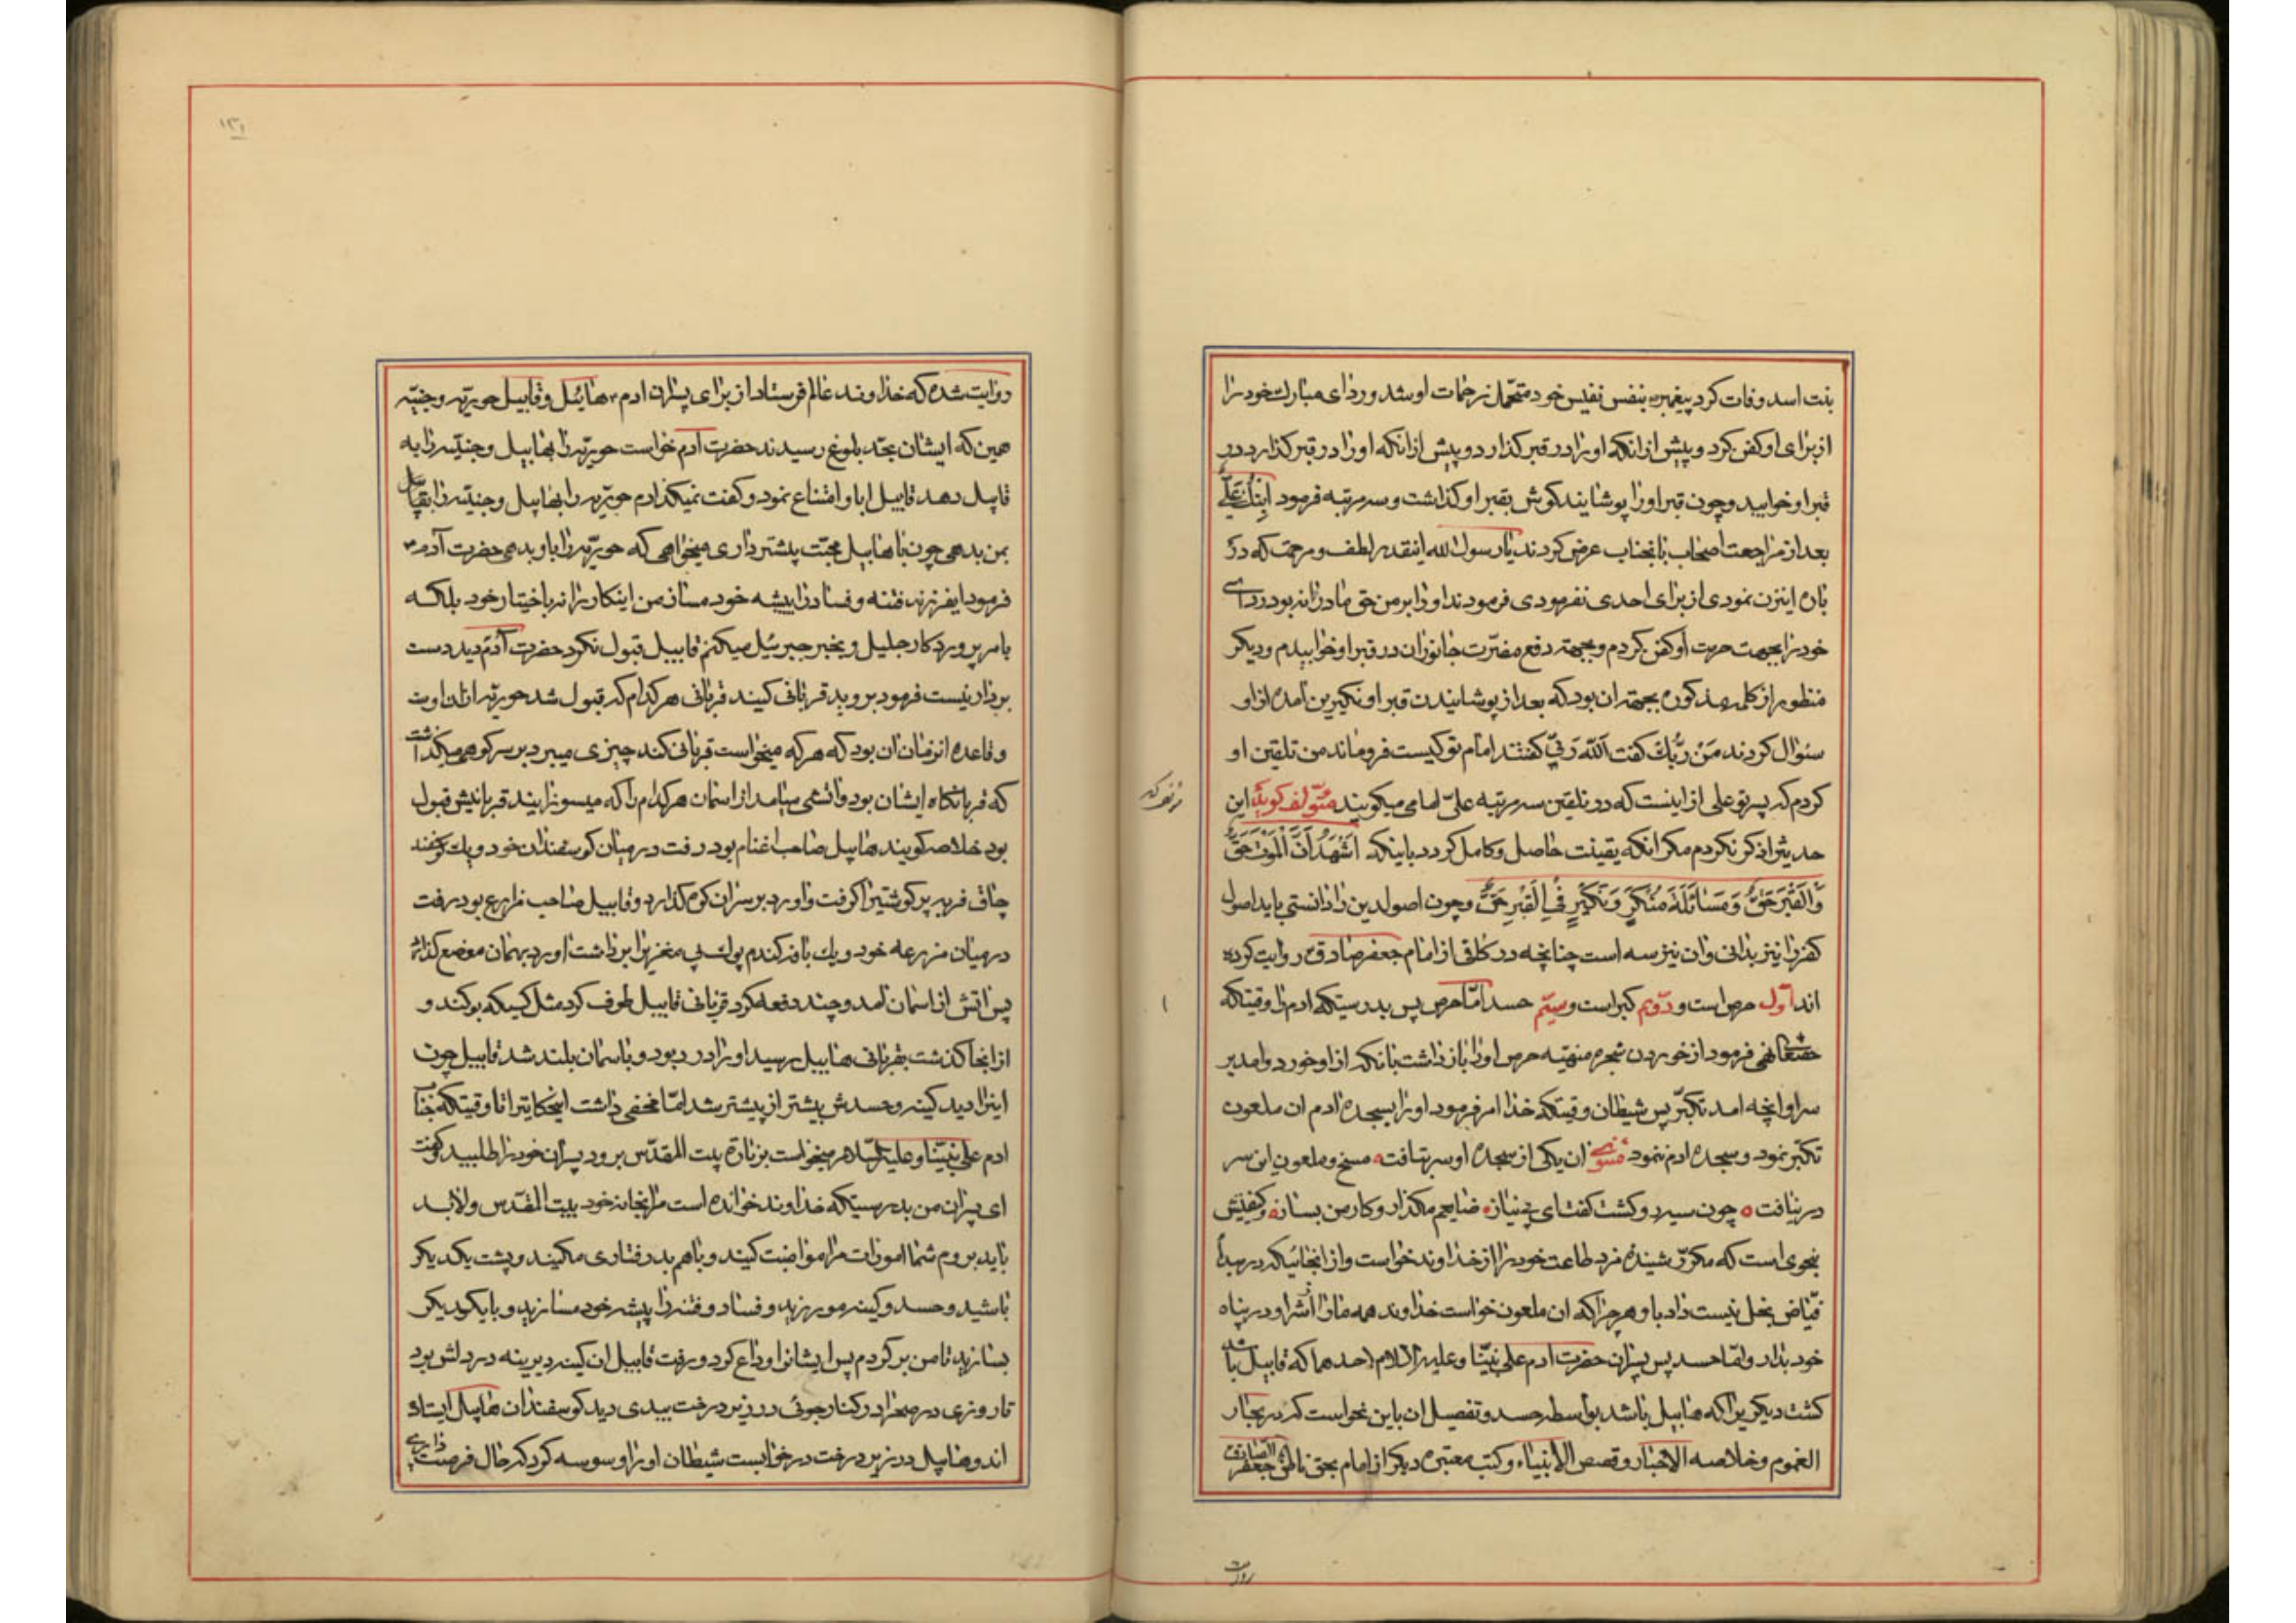 بنت اسد وفات کرد پیغمبر بنفس نفیس خود متحمل زحمات او شد و ردای مبارک خود را
از برای او کفن کرد و پیش از انکه او را در قبر کذارد و پیش از انکه او را در قبر کذارد در
قبر او خوابید و چون قبر او را پوشانید کوش بقبر او کذاشت و سه مرتبه فرمود ابنک علی
بعد از مراجعت اصحاب بانجناب عرض کردند یا رسول الله اینقدر لطف و مرحمت که در
باره این زن نمودی از برای احدی نفرمودی فرمودند او را بر من حق مادرانه بود ردای
خود را بجهت حرمت او کفن کردم و بجهة رفع مضرت جانوران در قبر او خوابیدم و دیکر
منظور از کلمه مذکوره بجهة ان بود که بعد از پوشانیدن قبر او نکیرین امده از او
سئوال کردند من ربک کفت الله ربی کفتند امام تو کیست فروماند من تلقین او
کردم که پسر تو علی از اینست که در تلقین سه مرتبه علی امامی میکویند مؤلف کوید این
حدیث را ذکر نکردم مکر انکه یقینت حاصل و کامل کردد باینکه اشهد ان الموت حق
و القبر حق و مسائلة منکر و نکیر فی القبر حق و چون اصول دین را دانستی باید اصول
کفر را نیز بدانی و ان نیز سه است چنانچه در کافی از امام جعفر صادق روایت کرده
اند اول حرص است و دویم کبر است و سیم حسد اما حرص پس بدرستیکه ادم را وقتیکه
حقتعالی نهی فرمود از خوردن شجره منهیه حرص او را باز داشت بانکه از او خورد و امد بر
سر او انچه امد تکبر پس شیطان وقتیکه خدا امر فرمود او را بسجده ادم ان ملعون
تکبر نمود و سجده ادم ننمود مثنوی ان یکی از سجده او سر بتافت مسخ و ملعون این سر
در نیافت چون سپرد و کشت کفت ای بی نیاز ضایعم مکذار و کار من بساز و کفیتش
نحوی است که مکرر شینده مزد طاعت خود را از خداوند خواست و از انجائیکه در مبدأ
فیاض بخل نیست داد باو هر چرا که ان ملعون خواست خداوند همه ما را از شر او در پناه
خود بدارد و اما حسد پس پسران حضرت ادم علی نبینا و علیه السلام احدهما که قابیل باشد
کشت دیکریرا که هابیل باشد بواسطه حسد و تفصیل ان باین نحو است که در بحار
الغموم و خلاصه الاخبار و قصص الانبیاء و کتب معتبره دیکر از امام بحق ناطق جعفر الصادق
روایت
۱۳۱
روایت شده که خداوند عالم فرستاد از برای پسران ادم هابیل و قابیل حوریه و جنیه
همین که ایشان بحد بلوغ رسیدند حضرت آدم خواست حوریه را بهابیل و جنیه را به
قابیل دهد قابیل ابا و امتناع نمود و کفت نمیکذارم حوریه را بهابیل و جنیه را بقابیل
بمن بدهی چون با هابیل محبت بیشتر داری میخواهی که حوریه را باو بدهی حضرت آدم
فرمود ایفرزند فتنه و فساد را پیشه خود مساز من اینکار را نه باختیار خود بلکه
بامر پروردکار جلیل و بخبر جبرئیل میکنم قابیل قبول نکرد حضرت آدم دید دست
بردار نیست فرمود بروید قربانی کنید قربانی هر کدام که قبول شد حوریه از ان اوست
و قاعده انزمان ان بود که هر که میخواست قربانی کند چیزی میبرد بر سر کوهی میکذاشت
که قربانکاه ایشان بود و اتشی میامد از اسمان هر کدام را که میسوزانید قربانیش قبول
بود خلاصه کویند هابیل صاحب اغنام بود رفت در میان کوسفندان خود و یک کوسفند
چاق فربه پر کوشتیرا کرفت و اورد بر سر ان کوه کذارد و قابیل صاحب مزارع بود رفت
در میان مزرعه خود و یک بافه کندم پوک بی مغزیرا برداشت اورد بهمان موضع کذاشت
پس اتش از اسمان امد و چند دفعه کرد قربانی قابیل طوف کرد مثل کسیکه بو کند و
از انجا کذشت بقربانی هابیل رسید او را در ربود و باسمان بلند شد قابیل چون
اینرا دید کینه و حسدش بیشتر از پیشتر شد اما مخفی داشت اینحکایترا تا وقتیکه جناب
ادم علی نبینا و علیه السلام میخواست بزیارة بیت المقدس برود پسران خود را طلبید کفت
ای پسران من بدرستیکه خداوند خوانده است مرا بخانه خود بیت المقدس و لابد
باید بروم شما امورات مرا مواظبت کنید و با هم بدرفتاری مکنید و پشت یکدیکر
باشید و حسد و کینه مورزید و فساد و فتنه را پیشه خود مسازید و با یکدیکر
بسازید تا من بر کردم پس ایشانرا وداع کرد و رفت قابیل ان کینه دیرینه در دلش بود
تا روزی در صحرا در کنار جوئی در زیر درخت بیدی دید کوسفندان هابیل ایستاده
اند و هابیل در زیر درخت در خوابست شیطان او را وسوسه کرد که حال فرصت داری